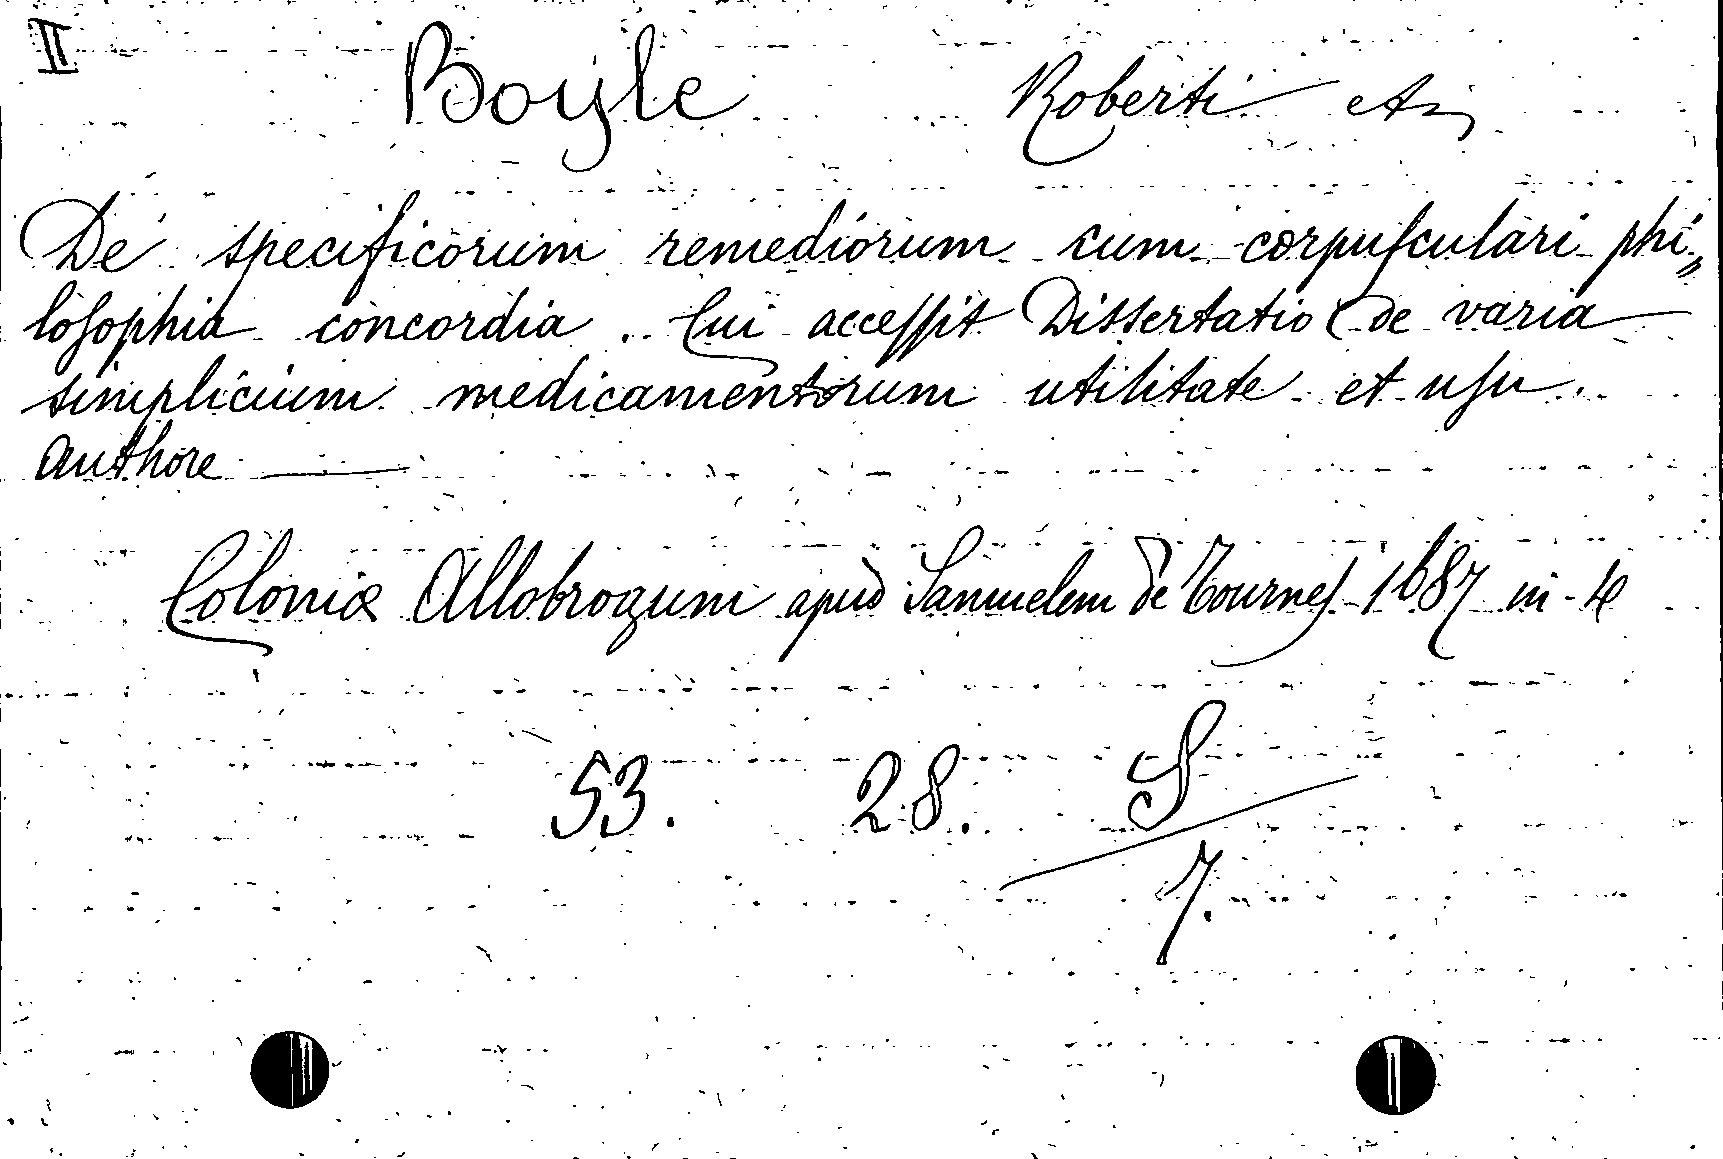 II
Boyle Roberti etc
De specificorum remediorum cum corpusculari phi„
losophia concordia. Cui accessit Dissertatio de varia
simplicium medicamentorum utilitate et usu.
Authore —
Coloniæ Allobrogum apud Samuelem de Tournes 1687 in-4
53. 28. S
7.